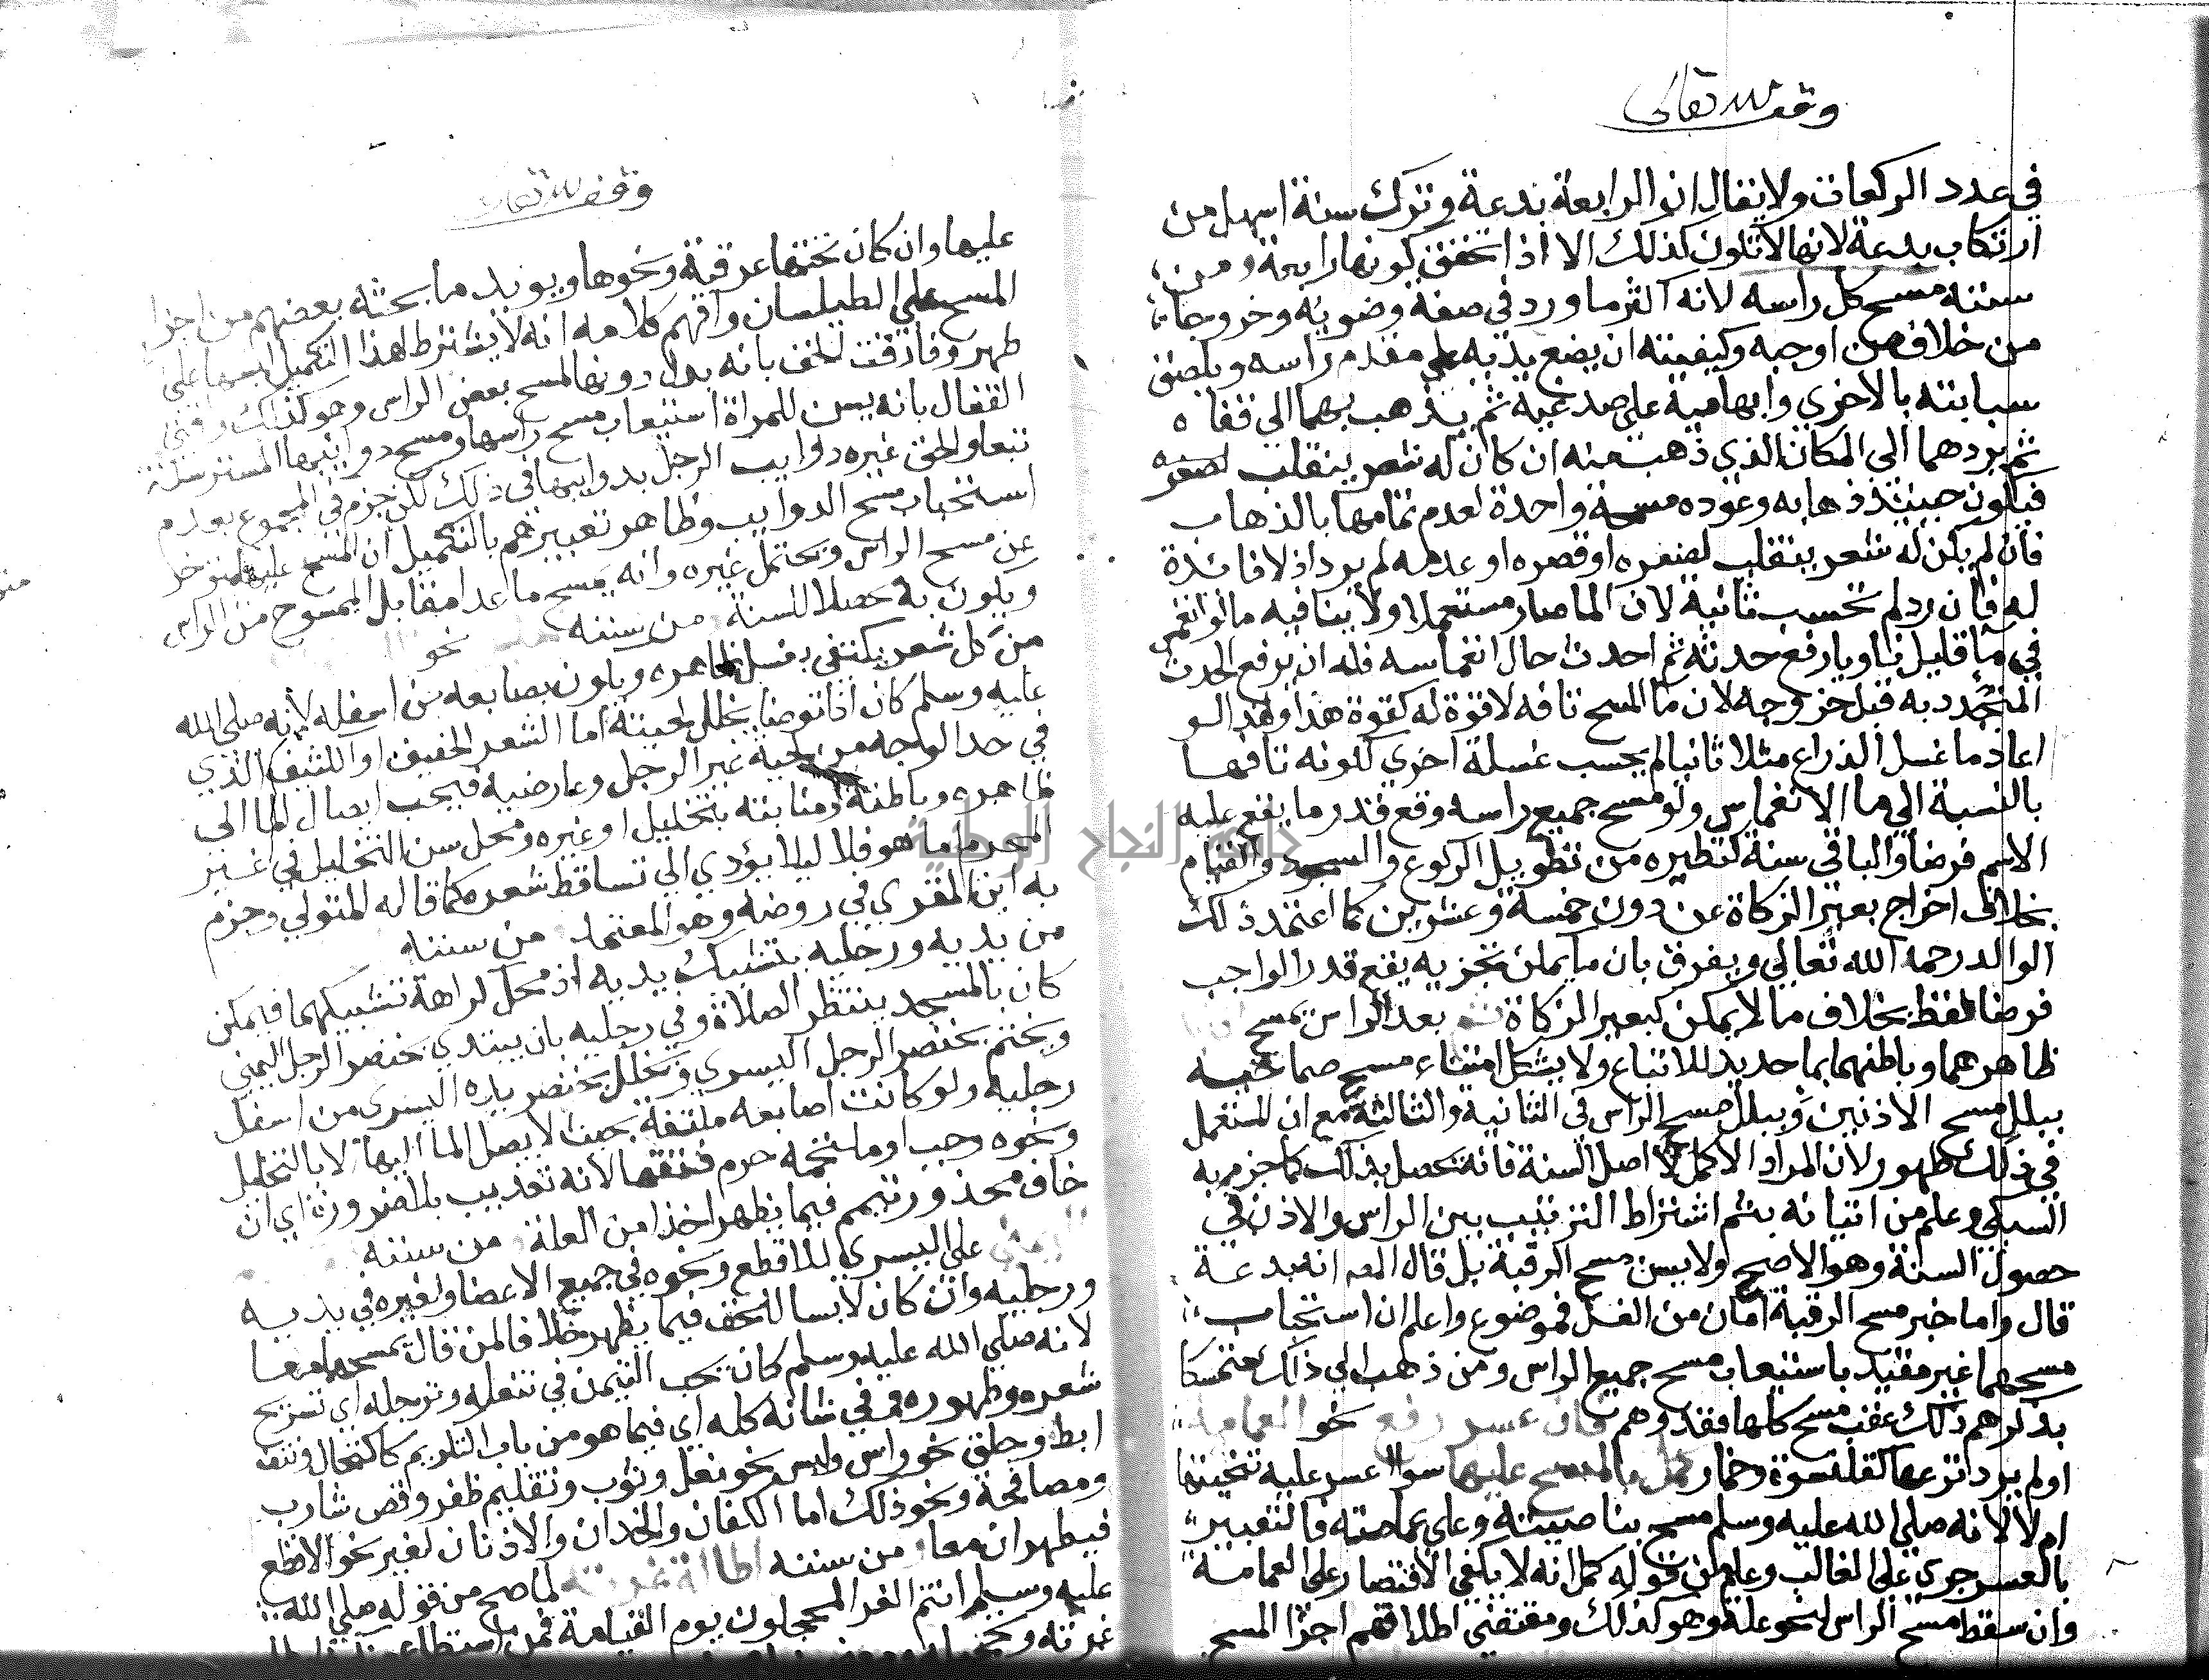 وقف لله تعالى
في عدد الركعات ولا يقال ان الرابعة بدعة وترك سنة اسهل من
ارتكاب بدعة لانها لا تكون كذلك الا اذا تحقق كونها رابعة ومن
سننه مسح كل راسه لانه اكثر ما ورد في صفة وضويه وخروجا
من خلاف من اوجبه وكيفيته ان يضع يديه على مقدم راسه ويلصق
سبابته بالاخري وابهاميه على صدغيه ثم يذهب بهما الي قفاه
ثم يردهما الي المكان الذي ذهب منه ان كان له شعر ينقلب
فيكون حينئذ ذهابه وعوده مسحة واحدة لعدم تمامها بالذهاب
فان لم يكن له شعر ينقلب لضفره او قصره او عدمه لم يرد اذ لا فائدة
له فان رد لم تحسب ثانية لان الما صار مستعملا ولا ينافيه ما لو انغمس
في ما قليل ناويا رفع حدثه ثم احدث حال انغماسه فله ان يرفع الحدث
المتجدد به قبل خروجه لان ما المسح تافه لا قوة له كقوة هذا ولهذا لو
اعاد ما غسل الذراع مثلا ثانيا لم يحسب غسلة اخري لكونه تافها
بالنسبة الي ما الانغماس ولو مسح جميع راسه وقع قدر ما يقع عليه
الاسم فرضا والباقي سنة كنظيره من تطويل الركوع والسجود والقيام
بخلاف اخراج بعير الزكاة عن دون خمسة وعشرين كما اعتمد ذلك
الوالد رحمه الله تعالي ويفرق بان ما يمكن تجزيه يقع قدر الواجب
فرضا فقط بخلاف ما لا يمكن كبعير الزكاة ثم بعد الراس مسح
ظاهرهما وباطنهما بما جديد للاتباع ولا يشكل امتناء مسح صماخيه
ببلل مسح الاذنين وببلل مسح الراس في الثانية والثالثة مع ان المستعمل
في ذلك طهور لان المراد الاكمل لا اصل السنة فانه يحصل بذلك كما جزم به
السبكي وعلم من اتيانه بثم اشتراط الترتيب بين الراس والاذن في
حصول السنة وهو الاصح ولا يسن مسح الرقبة بل قال المص انه بدعة
قال واما خبر مسح الرقبة امان من الغل فموضوع واعلم ان استحباب
مسحهما غير مقيد باستيعاب مسح جميع الراس ومن ذهب الي ذلك متمسكا
بذكرهم ذلك عقب مسح كلها فقد وهم فان عسر رفع نحو العمامة
اولم يرد نزعها كقلنسوة وخمار كمل بالمسح عليها سوا عسر عليه تنحيتها
ام لا لانه صلي الله عليه وسلم مسح بناصيته وعلي عمامته فالتعبير
بالعسر جري على الغالب وعلم من قوله كمل انه لا يكفي الاقتصار على العمامة
وان سقط مسح الراس لنحو علة وهو كذلك ومقتضي اطلاقهم اجزا المسح
وقف لله تعالى
عليها وان كان تحتها عرقية ونحوها ويويد ما بحثه بعضهم من اجزا
المسح على الطيلسان وافهم كلامه انه لا يشترط لهذا التكميل لبسها على
طهر وفارقت الخف بانه بدل دونها المسح بعض الراس وهو كذلك وافتي
القفال بانه يسن للمراة استيعاب مسح راسها ومسح ذوايبها المسترسلة
تبعا والحق غيره ذوايب الرجل بذوايبها في ذلك لكن جزم في المجموع بعدم
استحباب مسح الذوايب وظاهر تعبيرهم بالتكميل ان المسح عليها متوخر
عن مسح الراس ويحتمل غيره وانه يمسح ما عدا مقابل الممسوح من الراس
ويكون به محصلا للسنة ومن سننه نحو
من كل شعر يكتفي بغسل ظاهره ويكون بصابعه من اسفله لانه صلى الله
عليه وسلم كان اذا توضا يخلل لحيته اما الشعر الخفيف او الكثيف الذي
في حد الوجه من لحية غير الرجل وعارضيه فيجب ايصال الما الى
ظاهره وباطنه ومنابته بتخليل او غيره ومحل سن التخليل في غير
المحرم اما هو فلا ليلا يؤدي الي تساقط شعره كما قاله المتولي وجزم
به ابن المقري في روضه وهو المعتمد ومن سننه
من يديه ورجليه بتشبيك يديه اذ محل كراهة تشبيكهما فيمكن
كان بالمسجد ينتظر الصلاة وفي رجليه بان يبتدي بخنصر الرجل اليمني
ويختم بخنصر الرجل اليسري ويخلل بخنصر يده اليسرى من اسفل
رجليه ولو كانت اصابعه ملتفة بحيث لا يصل الما اليها الا بالتخليل
ونحوه وجب او ملتحمة حرم فتقها لانه تعذيب بلا ضرورة اي ان
خاف محذور تيمم فيما يظهر اخذا من العلة ومن سننه
على اليسري للاقطع ونحوه في جميع الاعضا ولغيره في يديه
ورجليه وان كان لابسا للخف فيما يظهر خلافا لمن قال يمسحهما معا
لانه صلي الله عليه وسلم كان يحب التيمن في تنعله وترجله اي تسريح
شعره وطهوره وفي شانه كله اي فيما هو من باب التكريم كاكتحال ونتف
ابط وحلق نحو راس ولبس نحو نعل وثوب وتقليم ظفر وقص شارب
ومصافحة ونحو ذلك اما الكفان والخدان والاذنان لغير نحو الاقطع
فيطهران معا ومن سننه اطالة غرته لما صح من قوله صلي الله
عليه وسلم انتم الغر المحجلون يوم القيامة فمن استطاع